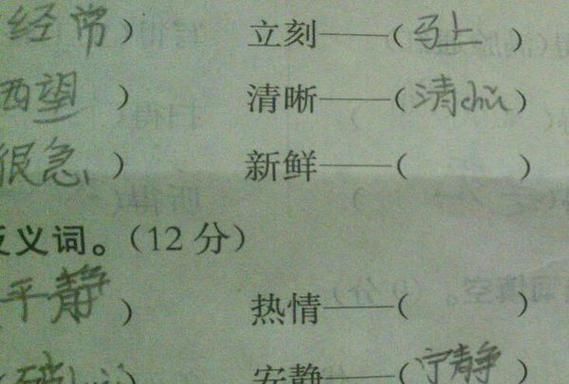 经常） 立刻——（马上）
西望） 清晰——（清chu）
很急） 新鲜——（ ）
反义词。（12分）
平静） 热情——（ ）
安静——（宁静）